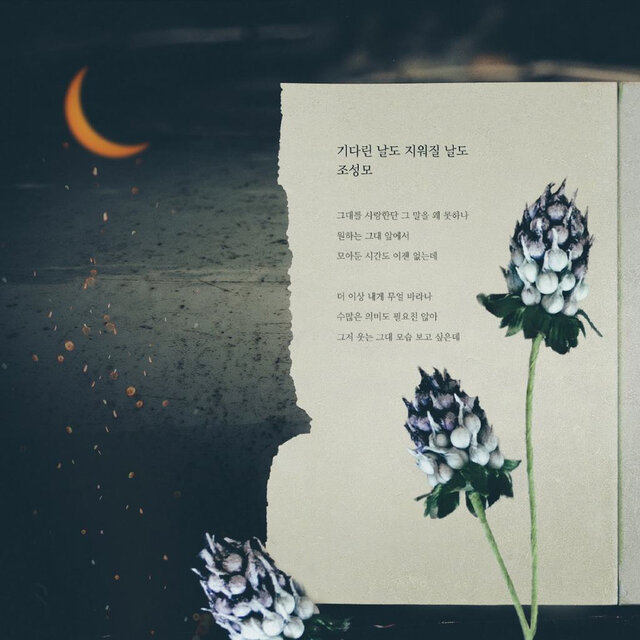 기다린 날도 지워질 날도
조성모
그대를 사랑한단 그 말을 왜 못하나
원하는 그대 앞에서
모아둔 시간도 이젠 없는데
더 이상 내게 무얼 바라나
수많은 의미도 필요친 않아
그저 웃는 그대 모습 보고 싶은데